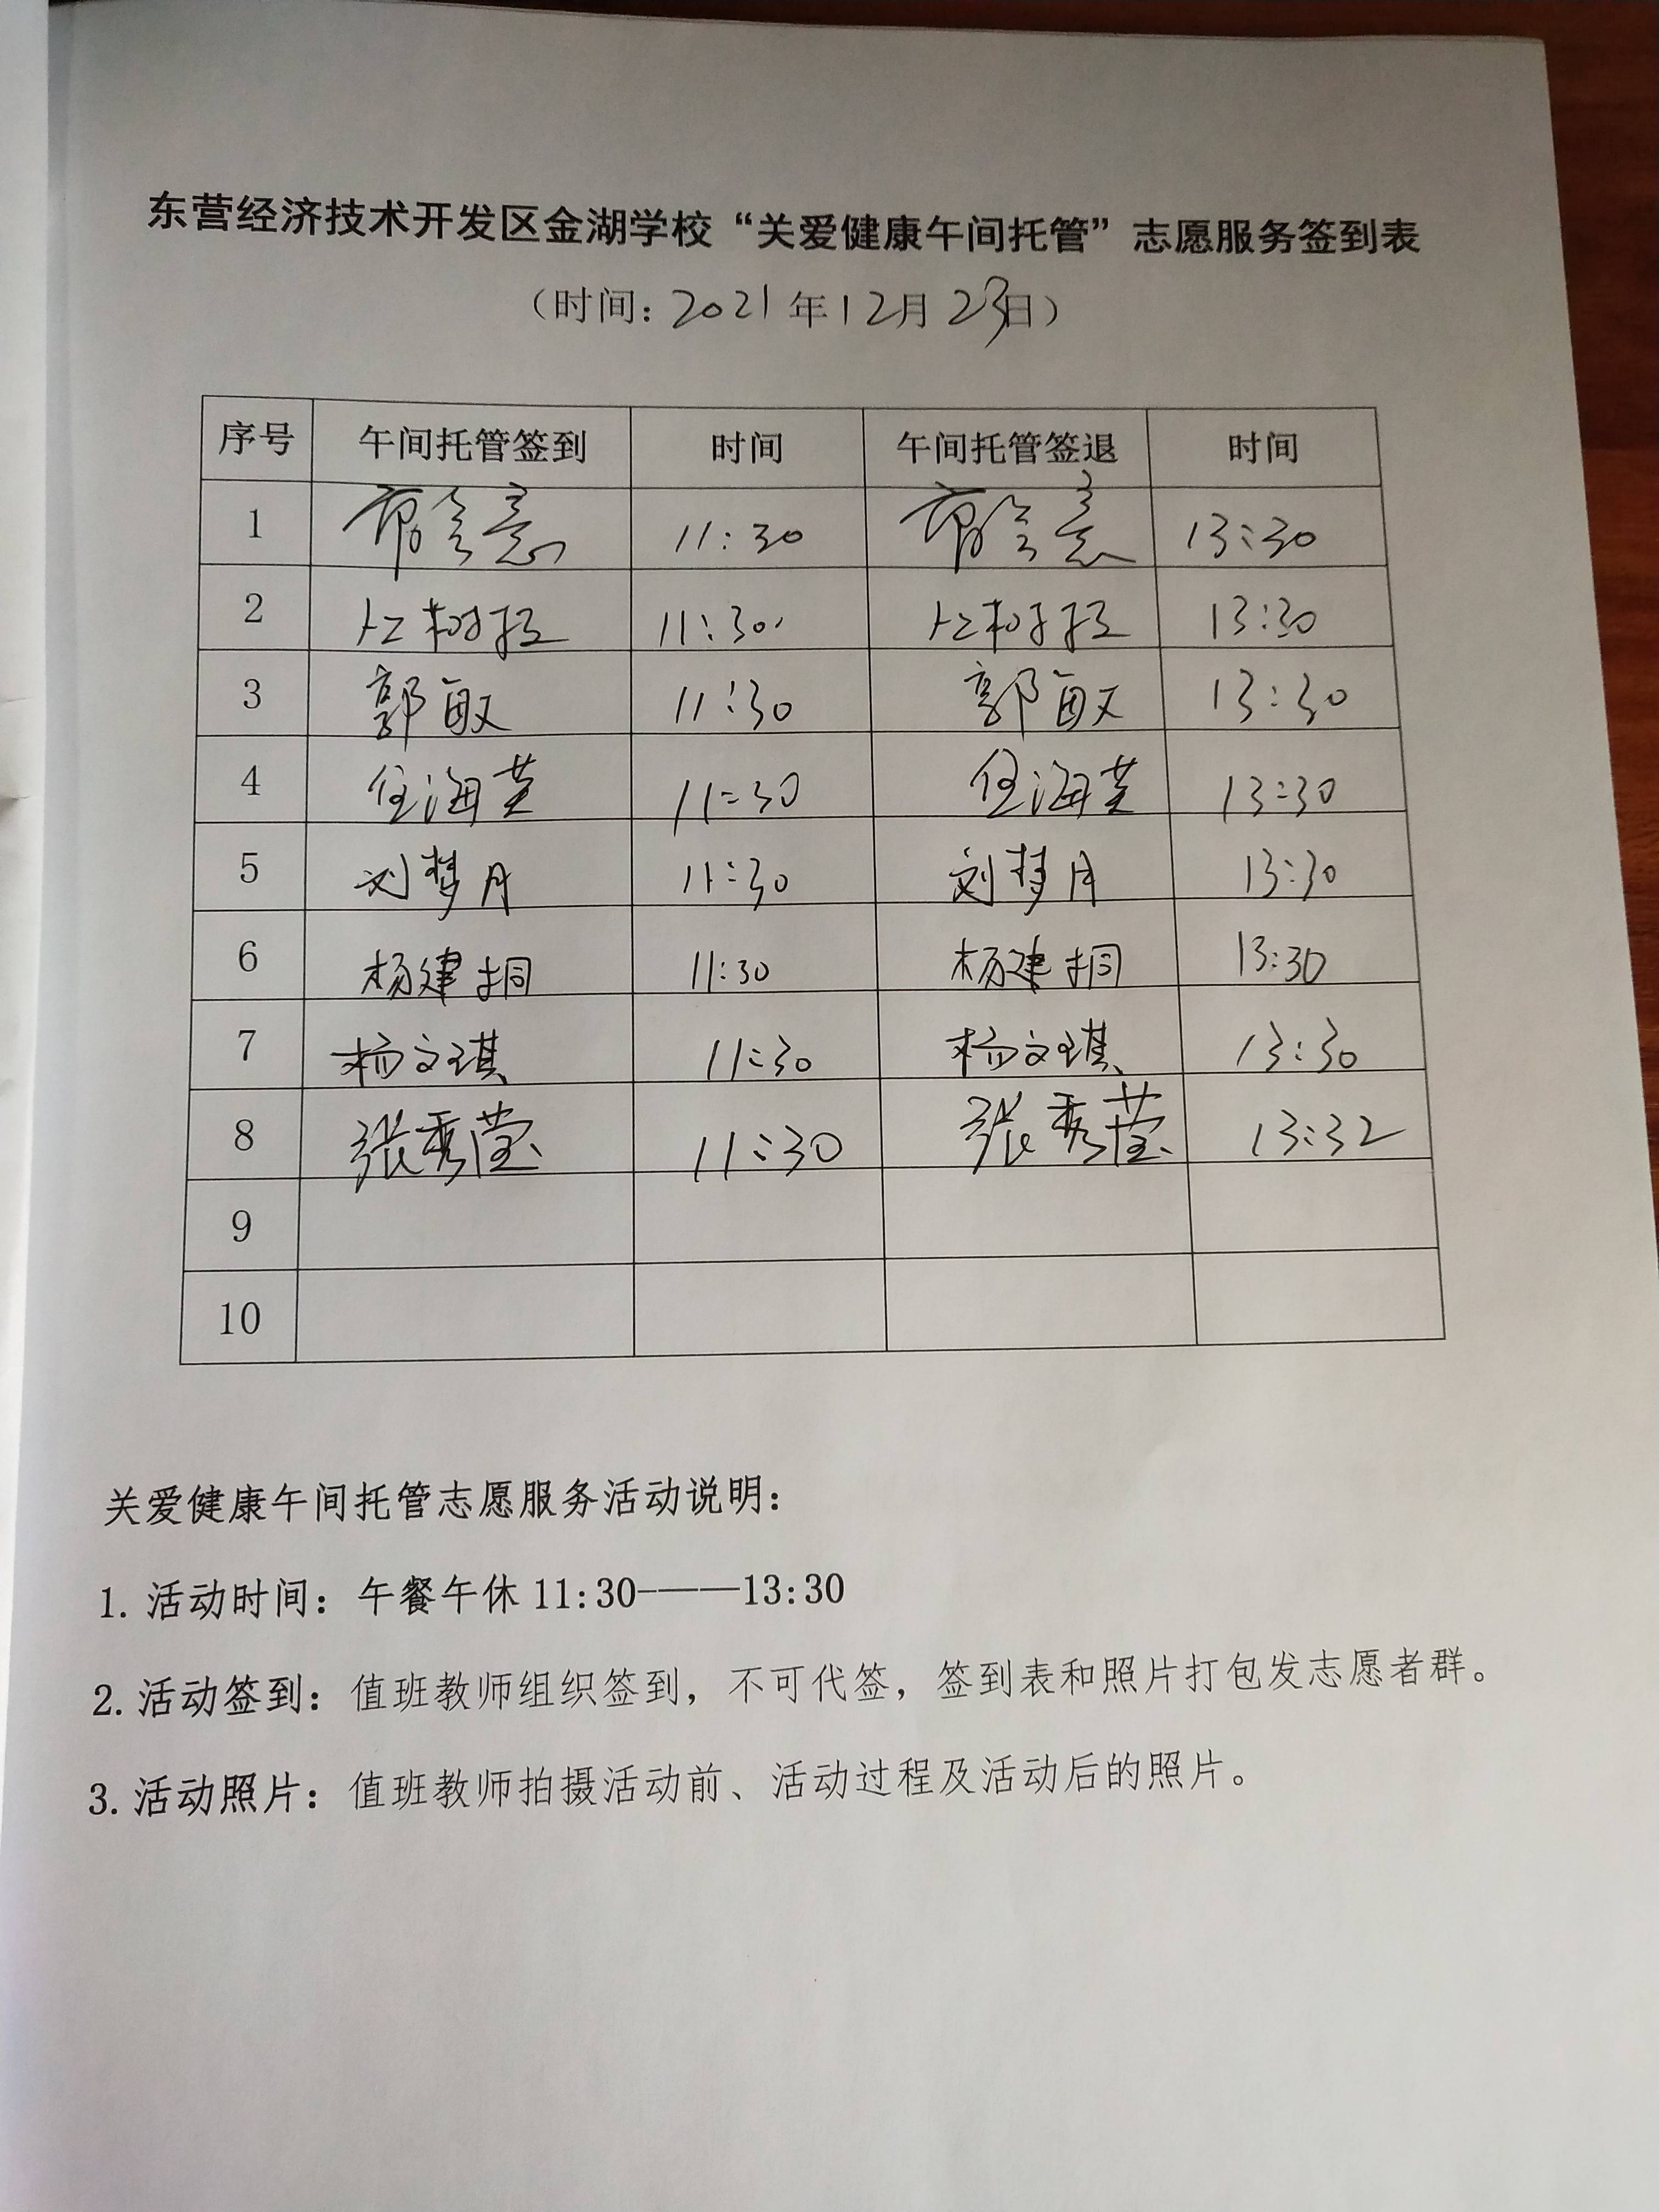 东营经济技术开发区金湖学校“关爱健康午间托管”志愿服务签到表
（时间：2021年12月23日）
序号 午间托管签到 时间 午间托管签退 时间
1 11:30 13:30
2 11:30 13:30
3 郭敏 11:30 郭敏 13:30
4 任海英 11:30 任海英 13:30
5 刘梦月 11:30 刘梦月 13:30
6 杨建桐 11:30 杨建桐 13:30
7 杨文琪 11:30 杨文琪 13:30
8 张秀莹 11:30 张秀莹 13:32
9
10
关爱健康午间托管志愿服务活动说明：
1. 活动时间：午餐午休 11:30-———13:30
2. 活动签到：值班教师组织签到，不可代签，签到表和照片打包发志愿者群。
3. 活动照片：值班教师拍摄活动前、活动过程及活动后的照片。